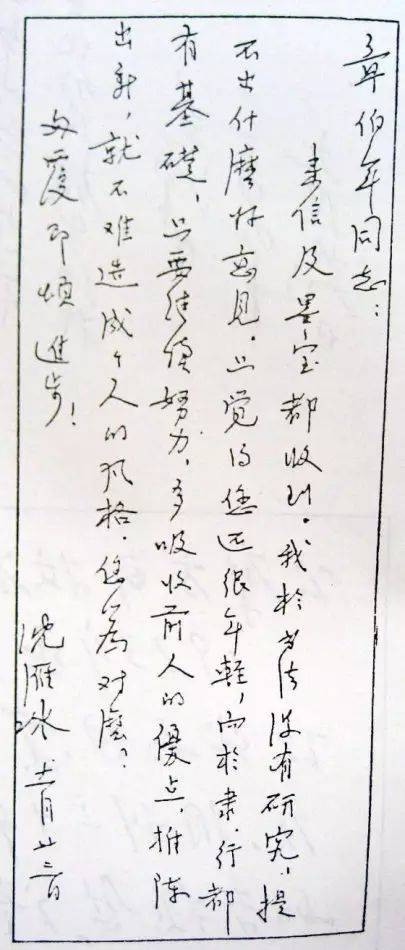 章伯年同志：
来信及墨宝都收到。我於书法没有研究，提
不出什麼好意见。只觉得您还很年輕，而於隶、行都
有基礎，只要继续努力，多吸收前人的優点，推陈
出新，就不难造成个人的风格。您以为对麼？
匆覆即頌進步！
沈雁冰 十一月廿三日